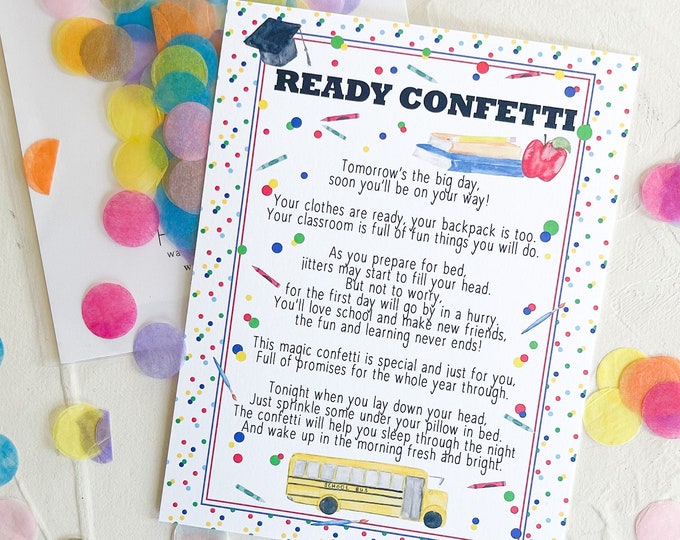 READY CONFETTI
Tomorrow's the big day,
soon you'll be on your way!
Your clothes are ready, your backpack is too.
Your classroom is full of fun things you will do.
As you prepare for bed,
jitters may start to fill your head.
But not to worry,
for the first day will go by in a hurry.
You'll love school and make new friends,
the fun and learning never ends!
This magic confetti is special and just for you,
Full of promises for the whole year through.
Tonight when you lay down your head,
Just sprinkle some under your pillow in bed.
The confetti will help you sleep through the night
And wake up in the morning fresh and bright.
SCHOOL BUS